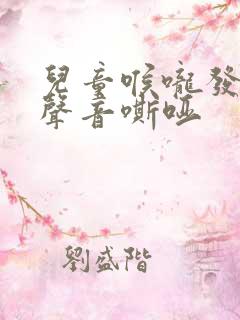 兒童喉嚨發
聲音嘶啞
劉盛階